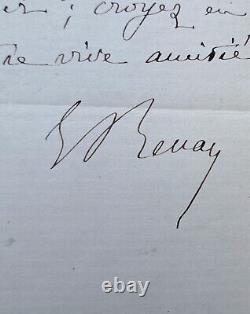 ; croyez en
vive amitié
E Renan
© 118